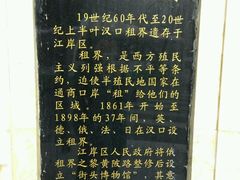 19世纪60年代至20世
纪上半叶汉口租界遗存于
江岸区。
租界，是西方殖民
主义列强根据不平等条
约，迫使半殖民地国家在
通商口岸“租”给他们的
区域。1861年开始至
1898年的37年间，英、
德、俄、法、日在汉口设
立租界。
江岸区人民政府将俄
租界之黎黄陂路整修后设
立“街头博物馆”，其意